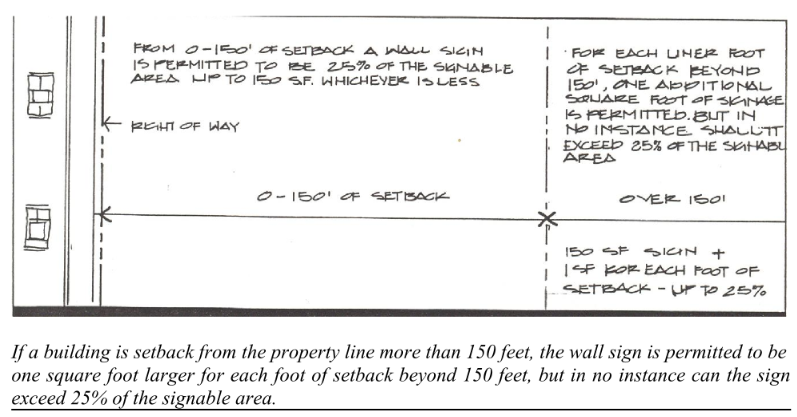 FROM 0-150' OF SETBACK A WALL SIGN
IS PERMITTED TO BE 25% OF THE SIGNABLE
AREA UP TO 150 SF. WHICHEVER IS LESS
RIGHT OF WAY
0-150' OF SETBACK
FOR EACH LINER FOOT
OF SETBACK BEYOND
150', ONE ADDITIONAL
SQUARE FOOT OF SIGNAGE
IS PERMITTED. BUT IN
NO INSTANCE SHALL IT
EXCEED 25% OF THE SIGNABL
AREA
OVER 150'
150 SF SIGN +
1 SF FOR EACH FOOT OF
SETBACK - UP TO 25%
If a building is setback from the property line more than 150 feet, the wall sign is permitted to be
one square foot larger for each foot of setback beyond 150 feet, but in no instance can the sign
exceed 25% of the signable area.